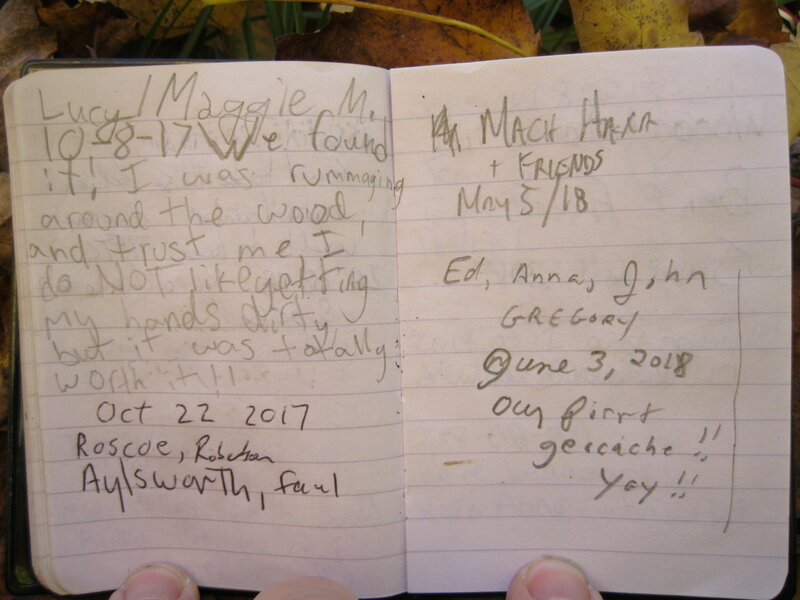 Lucy/Maggie M.
10-8-17 We found
it! I was rummaging
around the wood,
and trust me, I
do NOT like getting
my hands dirty
but it was totally
worth it!!
Oct 22 2017
Roscoe,
Aylsworth,
MACH HARR
+ FRIENDS
May 5/18
Ed, Anna, John
GREGORY
June 3, 2018
Our first
geocache!!
Yay!!